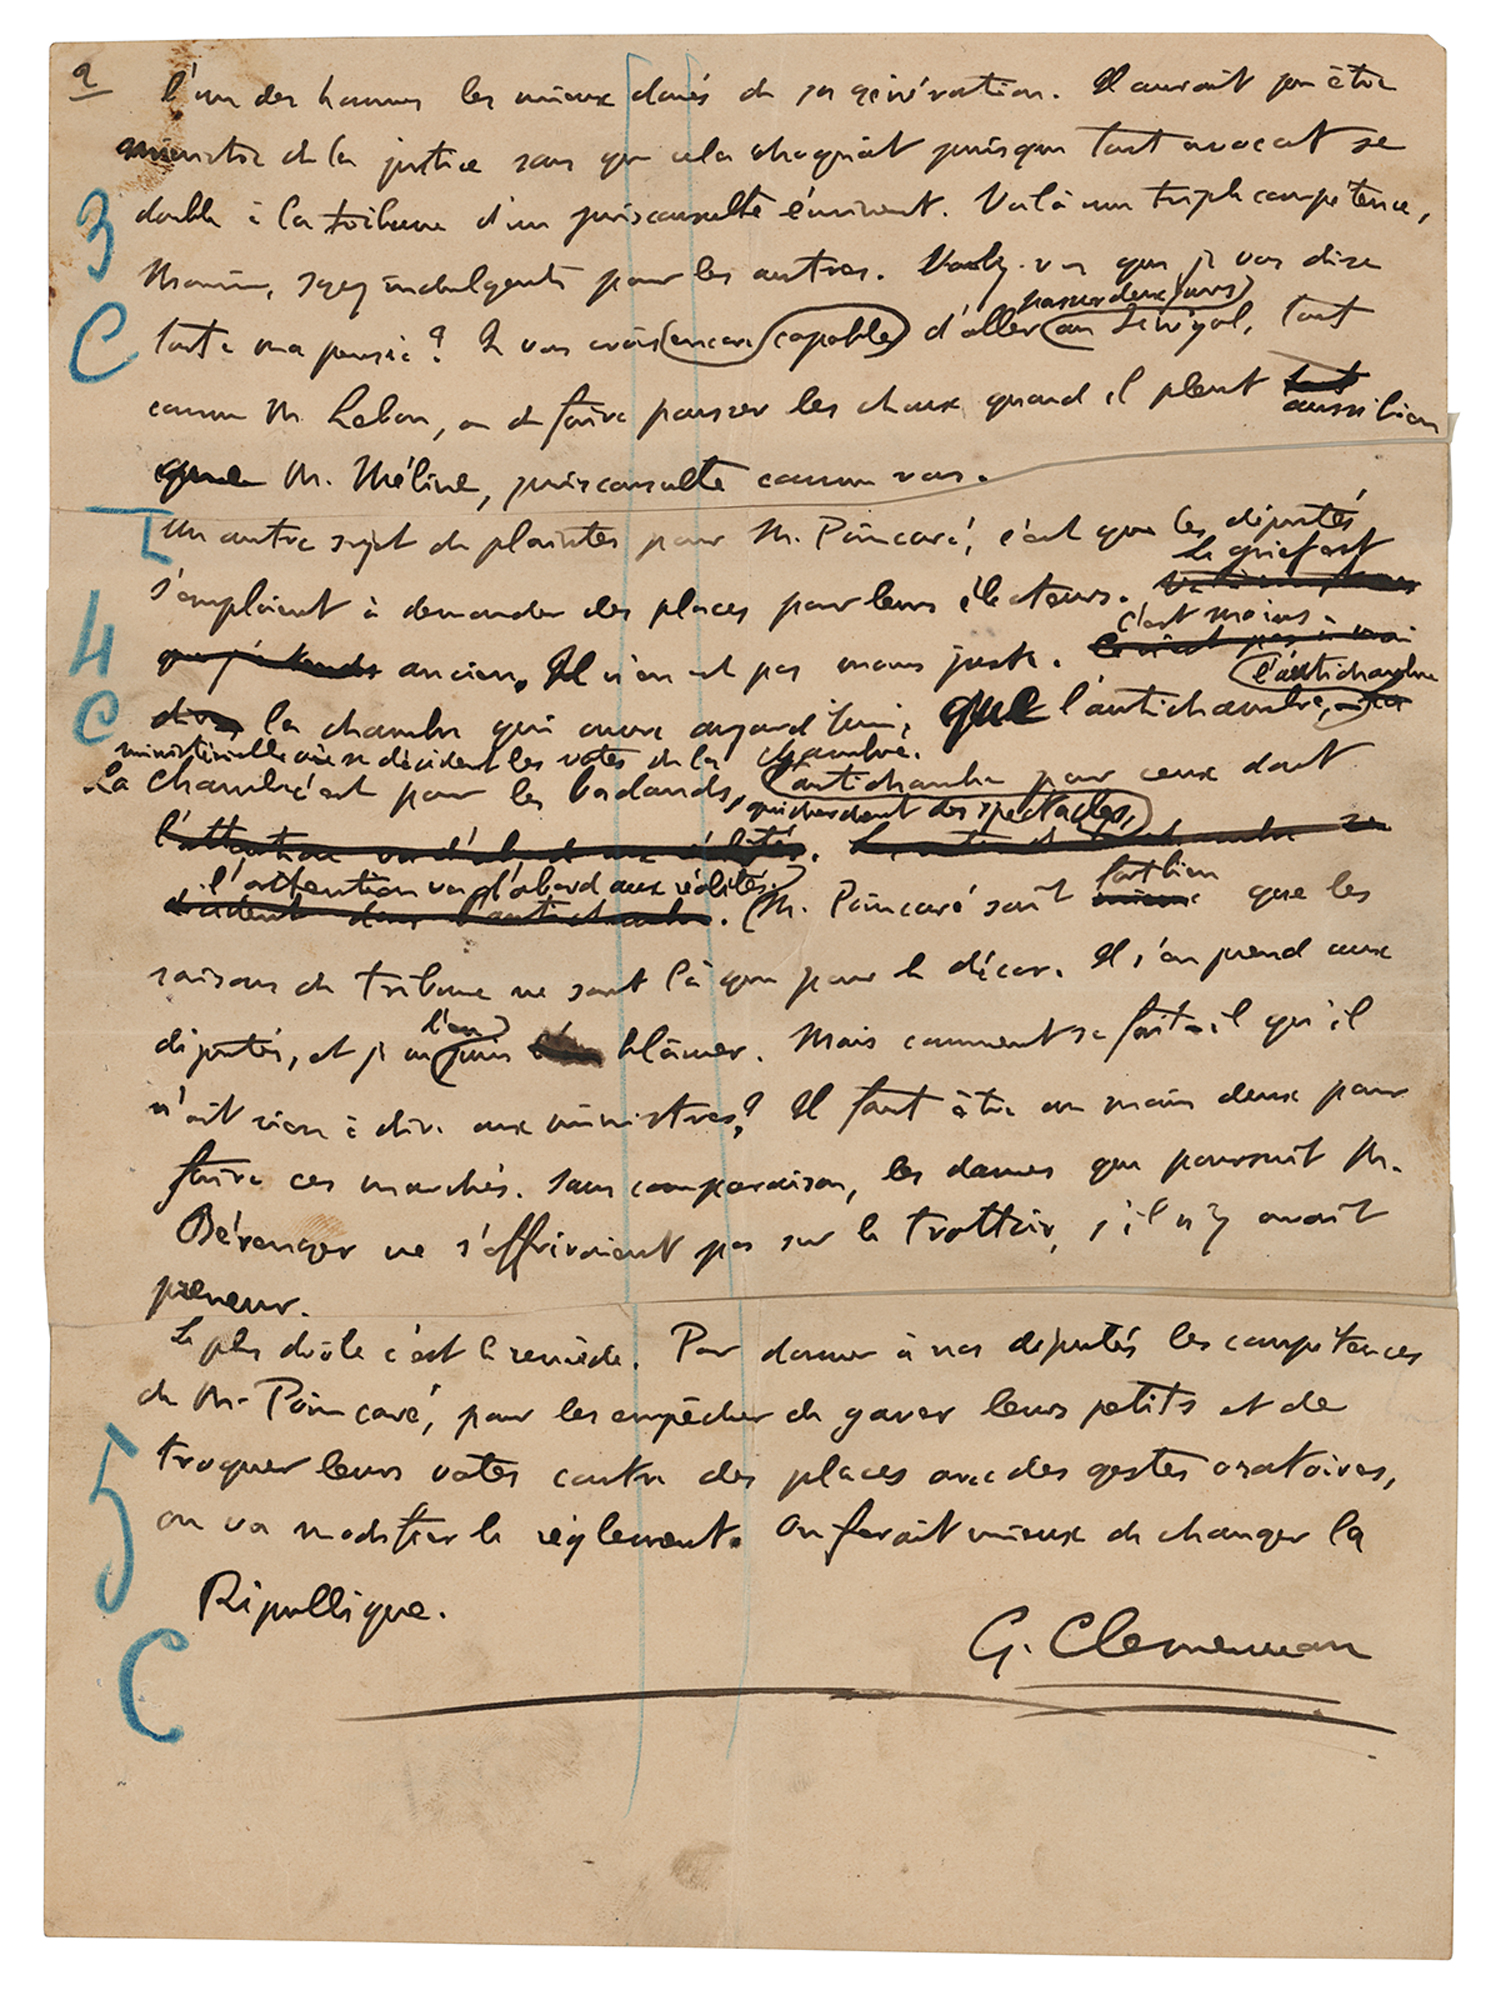 2
l'un des hommes les mieux doués de sa génération. Il aurait pu être
ministre de la justice sans que cela choquât puisque tout avocat se
3
double à la tribune d'un jurisconsulte éminent. Voilà une triple compétence,
soyez indulgents pour les autres. Voulez-vous que je vous dise
passer deux jours
C
toute ma pensée? Je vous crois encore capable d'aller au Sénégal, tout
comme M. Lebon, ou de faire pousser les choux quand il pleut tout
aussi bien
que M. Méline, jurisconsulte comme vous.
I
Un autre sujet de plaintes pour M. Poincaré, c'est que les députés
Le grief est
s'emploient à demander des places pour leurs électeurs.
4
c'est moins
ancien. Il n'en est pas moins juste.
l'antichambre
C
la chambre qui ouvre aujourd'hui, que l'antichambre,
ministérielle où se décident les votes de la chambre.
La Chambre c'est pour les badauds, l'antichambre pour ceux dont
qui cherchent des spectacles,
l'attention va d'abord aux réalités.
l'attention va d'abord aux réalités.
fort bien
décident dans l'antichambre. M. Poincaré sait mieux que les
raisons de tribune ne sont là que pour le décor. Il s'en prend aux
l'en
députés, et je ne puis blâmer. Mais comment se fait-il qu'il
n'ait rien à dire aux ministres? Il faut être au moins deux pour
faire ces marchés. Sans comparaison, les dames que poursuit M.
Bérenger ne s'offriraient pas sur le trottoir, s'il n'y avait
preneur.
Le plus drôle c'est le remède. Pour donner à nos députés les compétences
de M. Poincaré, pour les empêcher de gaver leurs petits et de
5
troquer leurs votes contre des places avec des gestes oratoires,
on va modifier le règlement. On ferait mieux de changer la
République.
G. Clemenceau
C